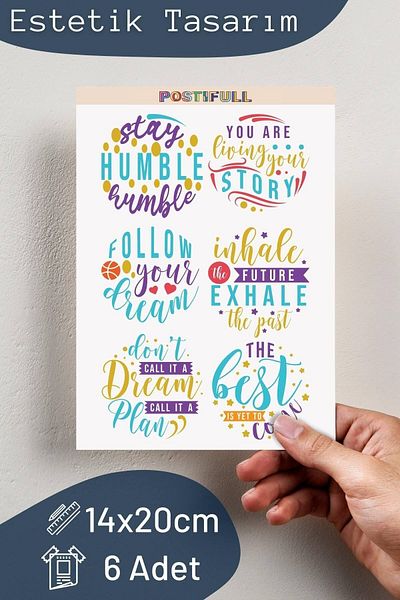 Estetik Tasarım
POSTIFULL
stay
HUMBLE
humble
YOU ARE
living your
STORY
FOLLOW
your
dream
inhale
the FUTURE
EXHALE
the past
don't
CALL IT A
Dream
CALL IT A
Plan
THE
best
IS YET TO
come
14x20cm
6 Adet